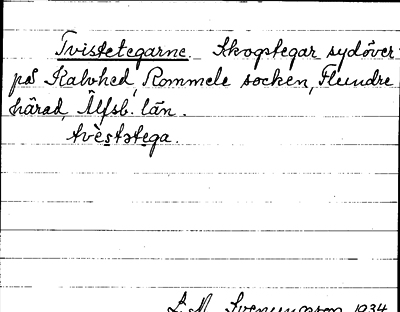 Tvistetegarne. Skogstegar sydöver
på Kalvhed, Rommele socken, Flundre
härad, Älfsb. län.
tvèstətega.
L. M. Svenungsson 1934